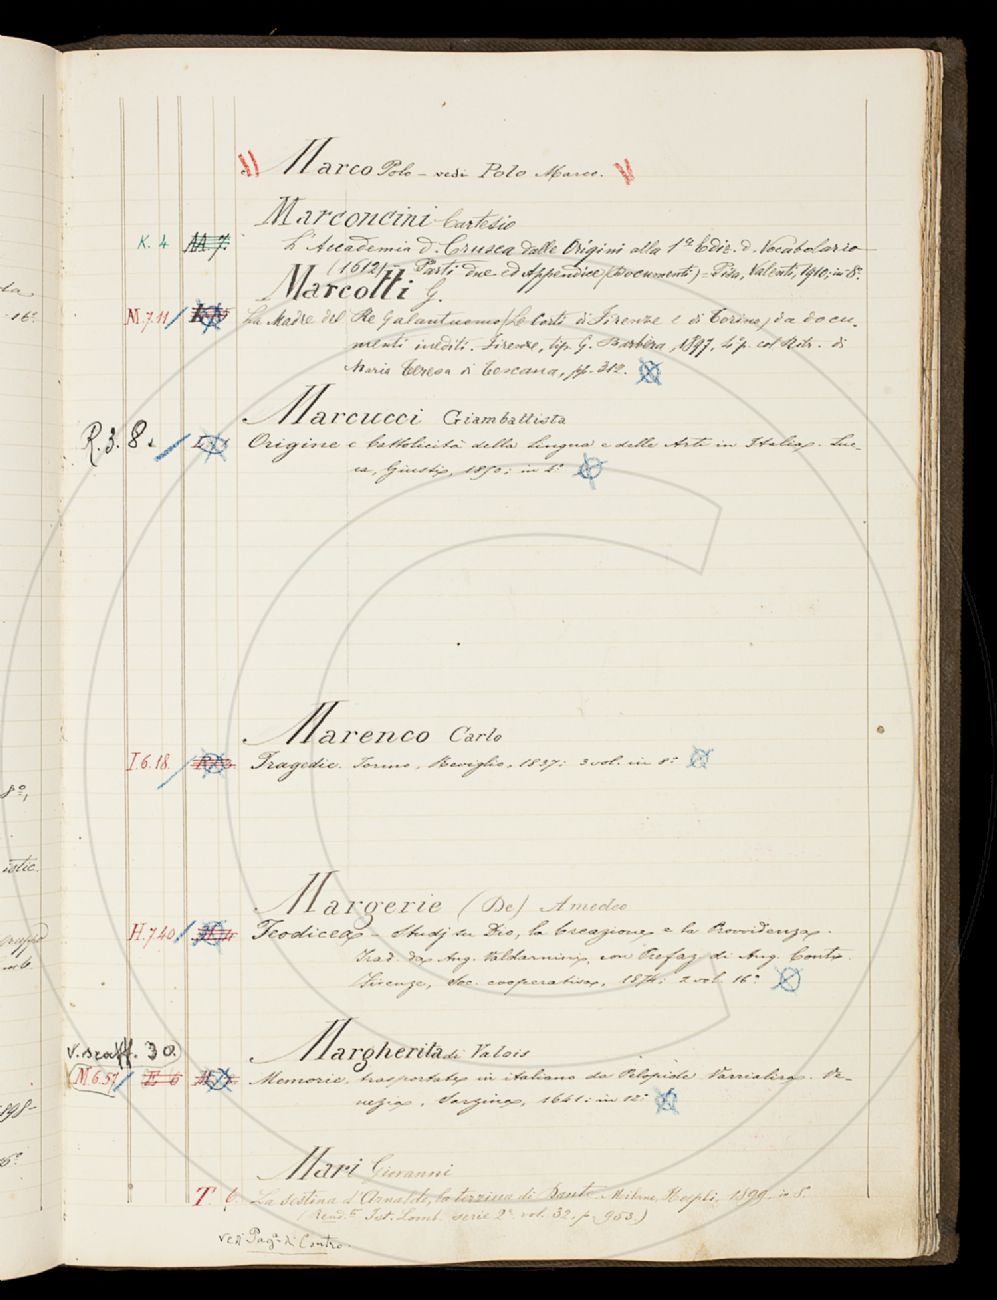 Marco Polo – vedi Polo Marco.
Marconcini Cartesio
K. 4 M 7. L'Accademia d. Crusca dalle Origini alla 1ª Ediz. d. Vocabolario
(1612) – Parti due ed Appendice (Documenti) = Pisa, Valenti, 1910; in 8º.
Marcotti G.
M.7.11 La Madre del Re Galantuomo (Le Corti di Firenze e di Torino) da docu-
menti inediti. Firenze, tip. G. Barbèra, 1897, col Ritr. di
Maria Teresa di Toscana, pp. 312.
Marcucci Giambattista
R.3.8. Origine e della Lingua e delle Arti in Italia. Luc-
ca, Giusti, in
Marenco Carlo
I.6.18 Tragedie. Torino, 1837: 3 vol. in 8º
Margerie (De) Amedeo
H.7.40 Teodicea – Studj su Dio, la Creazione e la Provvidenza.
Trad. da Aug. Valdarnini, con Prefaz di Aug. Conti.
Firenze, Soc. cooperativa, 1874: 2 vol. 16º
V. scaff. 30
Margherita di Valois
M 6.57 E 6 Memorie, trasportate in italiano da Ve-
nezia, Sarzina, 1641: in 12º
Mari Giovanni
T. 6 La sestina d'Arnaldo, la terzina di Dante. Milano, Hoepli, 1899. in 8.
(Rend.ti Ist. Lomb. serie 2ª vol. 32. p. 953.)
vedi Pagª di Contro.